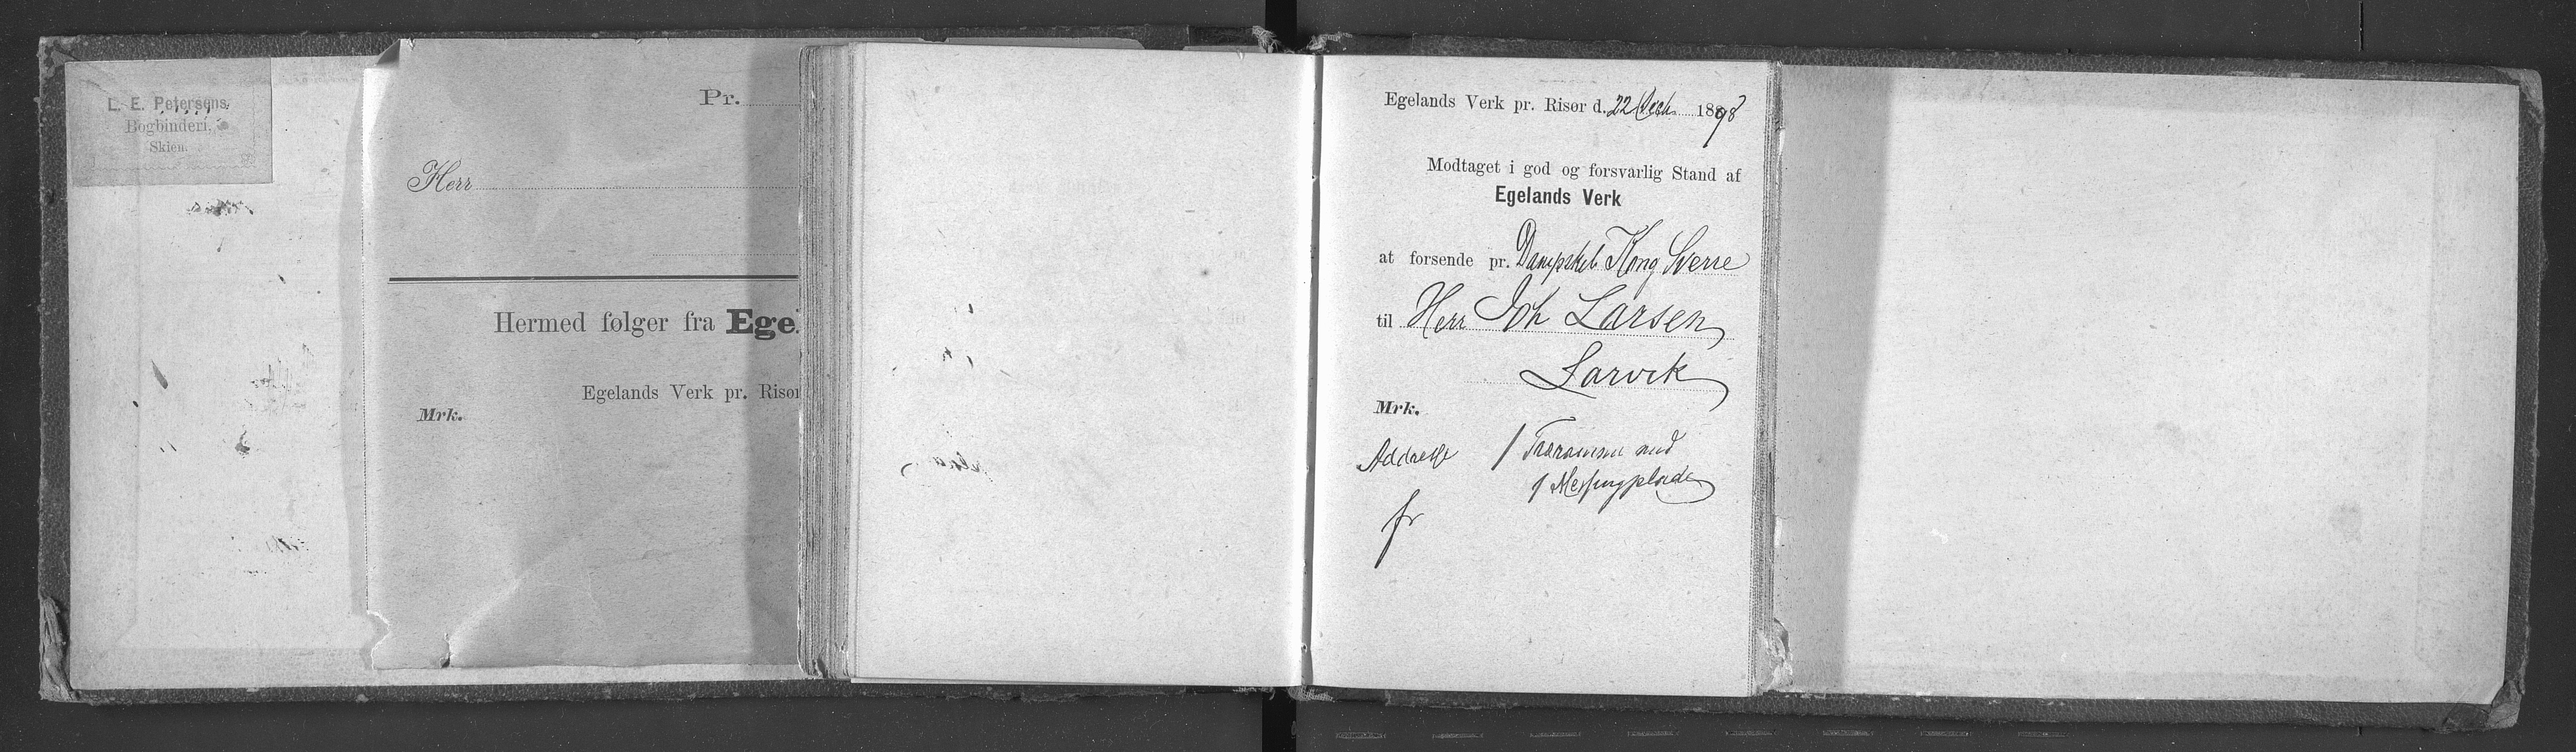 L. E. Petersens
Bogbinderi.
Skien.
Pr.
Herr
Hermed følger fra Ege
Egelands Verk pr. Risør
Mrk.
Egelands Verk pr. Risør d. 22 Decb. 1898
Modtaget i god og forsvarlig Stand af
Egelands Verk
at forsende pr. Dampskib Kong Sverre
til Herr Joh Larsen
Larvik
Mrk.
Addresse 1 Træramme med
1 Messingplade
fr